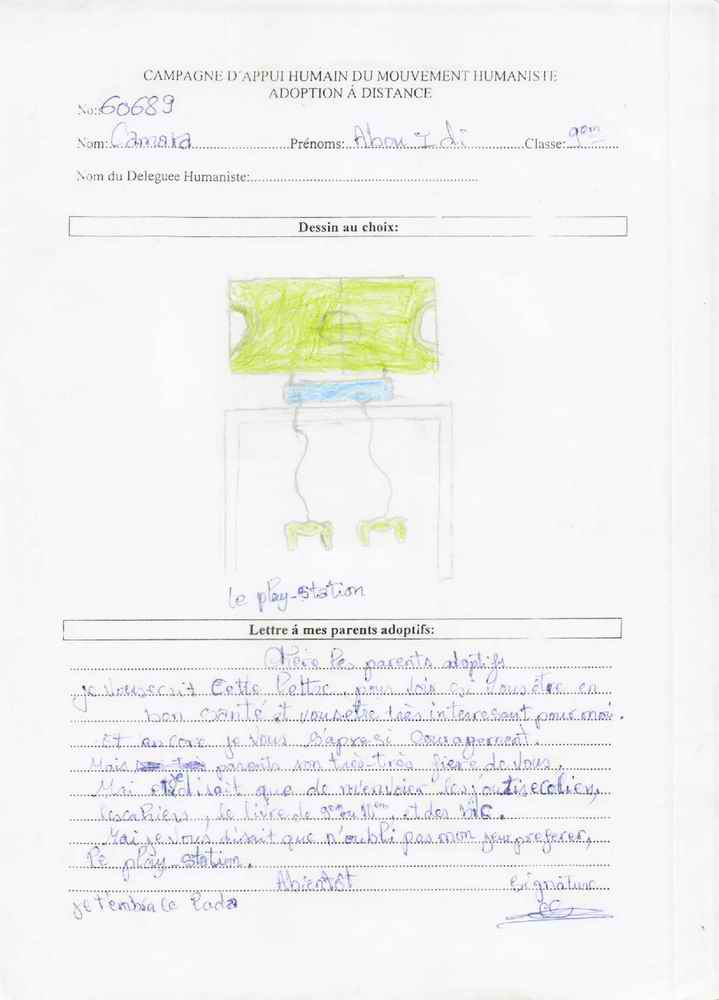 CAMPAGNE D'APPUI HUMAIN DU MOUVEMENT HUMANISTE
ADOPTION Á DISTANCE
No: 60689
Nom: Camara Prénoms: Abou I di Classe: 9em
Nom du Deleguee Humaniste:
Dessin au choix:
le play-station
Lettre á mes parents adoptifs:
Chère les parents adoptifs
je vous ecrit cette lettre pour voir si vous être en
bon santé et vous etre très interesant pour moi.
Et encore je vous couragement.
Mais parents son très-très fière de vous.
Mai disait que de m'envoier les
les cahiers, le livre de 9em 10em, et des
Mai je vous disait que n'oubli pas mon jeu preferer,
le play station.
Abientôt Signature
je t'embra